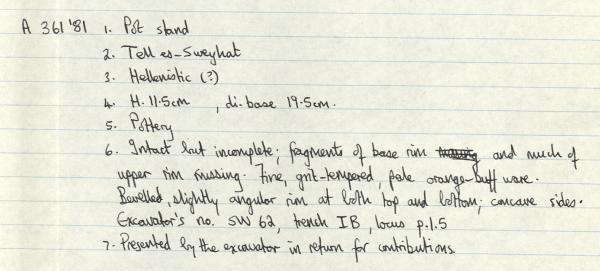 A 361 '81 1. Pot stand
2. Tell es-Sweyhat
3. Hellenistic (?)
4. H. 11.5cm , di. base 19.5cm.
5. Pottery
6. Intact but incomplete; fragments of base rim and much of
upper rim missing. Fine, grit-tempered, pale orange-buff ware.
Bevelled, slightly angular rim at both top and bottom; concave sides.
Excavator's no. SW 62, trench IB, locus p.1.5
7. Presented by the excavator in return for contributions